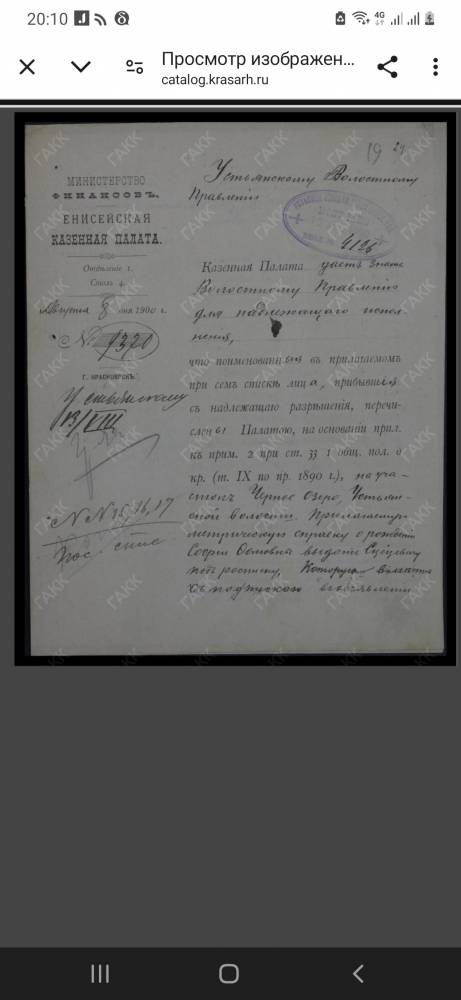 20:10
4G
Просмотр изображен...
catalog.krasarh.ru
МИНИСТЕРСТВО
ФИНАНСОВЪ.
ЕНИСЕЙСКАЯ
КАЗЕННАЯ ПАЛАТА.
Отдѣленіе 1.
Столъ 4.
Августа 8 дня 1900 г.
№ 1320
Г. КРАСНОЯРСКЪ.
Устьянскому
13/VIII
№№ 15, 16, 17
Пос. спис
19
Устьянскому Волостному
Правленію
4126
Казенная Палата даетъ знать
Волостному Правленію
для надлежащаго испол-
ненія,
что поименованныя въ прилагаемомъ
при семъ спискѣ лица, прибывшія
съ надлежащаго разрѣшенія, перечи-
слены Палатою, на основаніи прил.
къ прим. 2 при ст. 33 1 общ. пол. о
кр. (т. IX по пр. 1890 г.), на уча-
стокъ Черное Озеро, Устьян-
ской волости. Прилагаемую
метрическую справку о рожденіи
выдать
Которую
съ подпискою
ГАКК